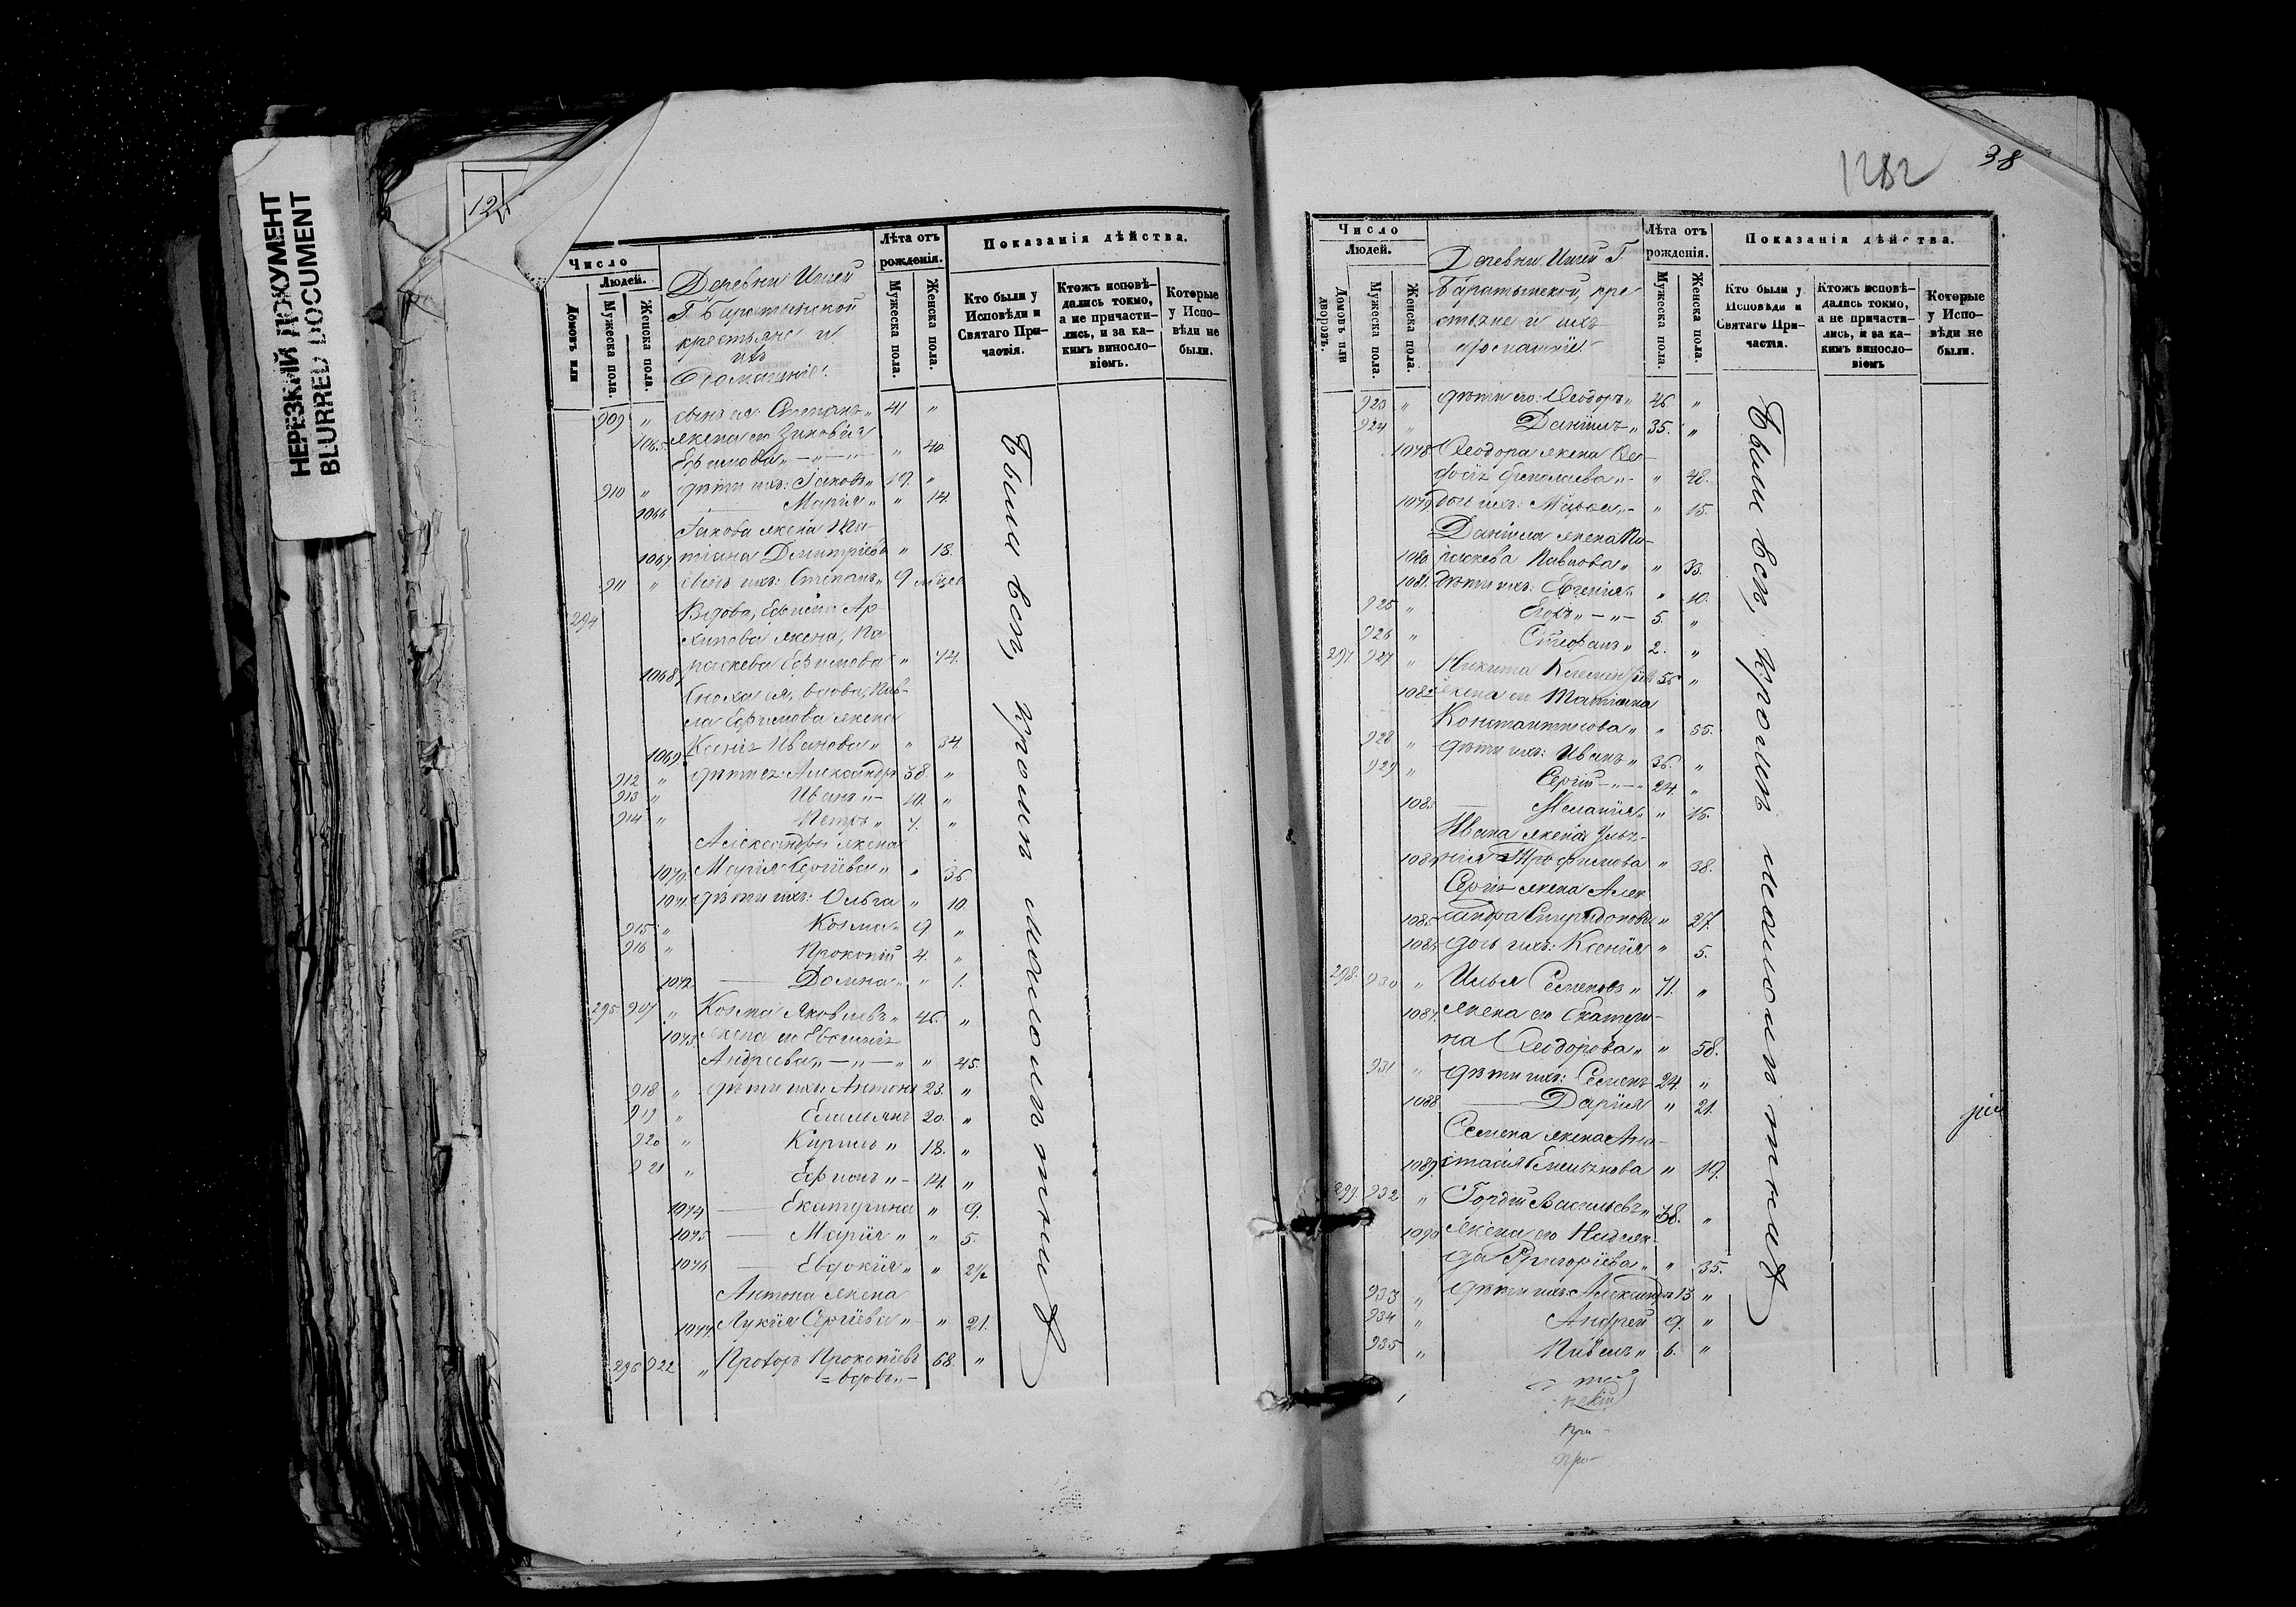 НЕРЕЗКИЙ ДОКУМЕНТ
BLURRED DOCUMENT
12
Число
Людей.
Домовъ или
Мужеска пола
Женска пола.
Деревни
Г. Баратынской
крестьяне и
ихъ
домашніе.
Лѣта отъ
рожденія.
Мужеска пола.
Женска пола.
Показанія дѣйства.
Кто были у
Исповѣди и
Святаго При-
частія.
Ктожъ исповѣ-
дались токмо,
а не причасти-
лись, и за ка-
кимъ виносло-
віемъ.
Которые
у Испо-
вѣди не
были.
909 " сынъ ея Степанъ " 41 "
1065 жена его Зиновія
Ефимова " — " — " 40
910 " дѣти ихъ: Іаковъ " 19. "
1066 Марія " " 14.
Іакова жена Та-
1067 тіана Димитріева " 18.
911 " сынъ ихъ: Степанъ " 9
294 Вдова, Ар-
хипова жена, Па
1068 раскева Ефимова " 74.
Сноха ея, вдова, Пав-
ла Ефимова жена
1069 Ксенія Иванова " " 34.
912 " дѣти ея: Александръ 38. "
913 " Иванъ " — 10. "
914 " Петръ " 7. "
Александра жена
1070 Марія Сергіева " " 36
1071. дѣти ихъ: Ольга " 10.
915 " Козма " 9 "
916 " Прокопій 4. "
1072 Домна " " 1.
295 917 " Козма Яковлевъ " 46. "
1073 жена его Евфимія
Андреева " — " — " " 45.
918 " дѣти ихъ Антонъ 23. "
919 " Емельянъ 20. "
920 " Кириллъ " 18. "
921 " 14. "
1074 Екатерина " 9.
1075 Марія " " 5.
1076 Евдокія " " 2½
Антона жена
1077. Лукія Сергіева " — " 21.
296 922 " Прохоръ Прокопіевъ 68. "
= вдовъ " —
Были всѣ, кромѣ малолѣтних
1282
38
Число
Людей.
Домовъ или
дворовъ.
Мужеска пола.
Женска пола.
Деревни Г.
Баратынской, кре
стьяне и ихъ
домашніе.
Лѣта отъ
рожденія.
Мужеска пола.
Женска пола.
Показанія дѣйства.
Кто были у
Исповѣди и
Святаго При-
частія.
Ктожъ исповѣ-
дались токмо,
а не причасти-
лись, и за ка-
кимъ виносло-
віемъ
Которые
у Испо-
вѣди не
были.
923 " дѣти его: Ѳеодоръ " 46. "
924 " Даніилъ " 35. "
1078 Ѳеодора жена Ѳео-
досія " 48.
1079 дочь ихъ: Марѳа " — " 15.
Даніила жена Па-
1080. раскева Павлова " " 33.
1081. дѣти ихъ: Евгенія " " 10.
925 " " — " — 5. "
926 " Стефанъ " 2. "
297 927 " Никита 56 "
1082 жена его Татіана
Константинова " " 55.
928 " дѣти ихъ: Иванъ " 36. "
929 " Сергій — " — " 24. "
1083 Меланія " " 15.
Ивана жена Улья-
1084 нія Трофимова " 38.
Сергія жена Алек
1085 сандра Спиридонова " 27.
1086 дочь ихъ: Ксенія " 5.
298. 930 " Илья Семеновъ " 71. "
1087. жена его Екатери-
на Ѳеодорова " " 58.
931 " дѣти ихъ: Семенъ 24. "
1088 Дарія " 21.
Семена жена Ана-
1089. стасія Емельянова " 19.
299. 932 " Гордій Васильевъ " 38. "
1090 жена его
Григоріева " " 35.
933 " дѣти ихъ: Александръ 13 "
934 " Андрей 9. "
935 " Павелъ " 6. "
Были всѣ, кромѣ малолѣтних